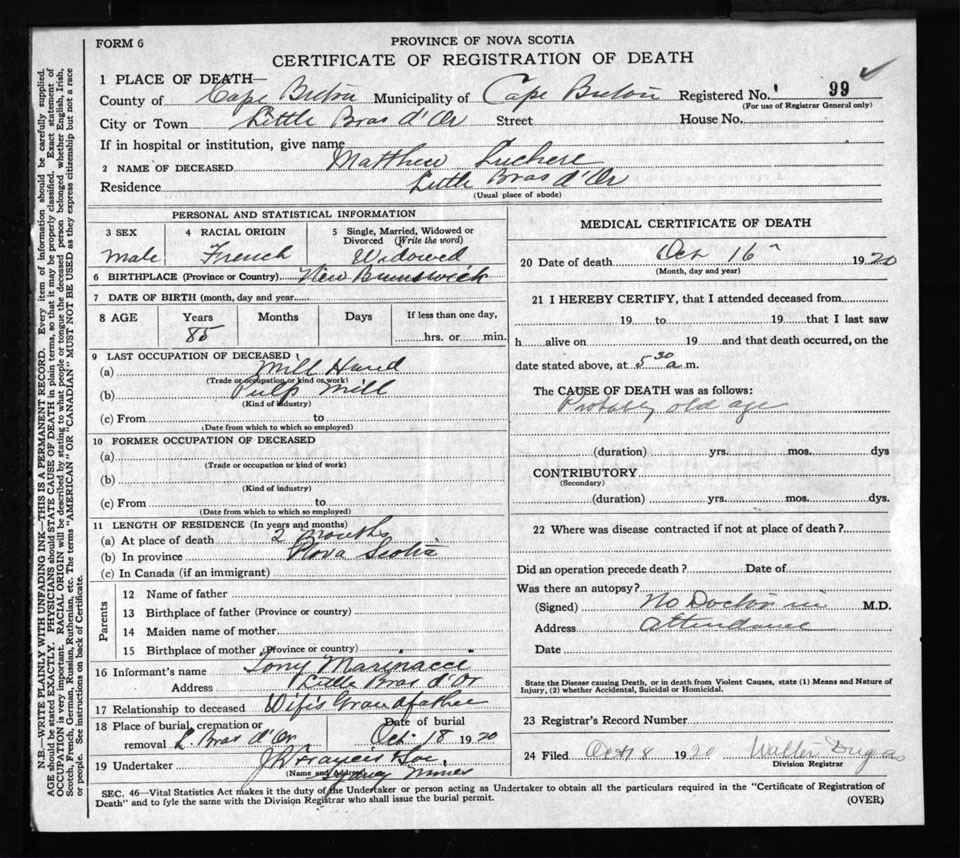 FORM 6
PROVINCE OF NOVA SCOTIA
CERTIFICATE OF REGISTRATION OF DEATH
1 PLACE OF DEATH—
County of Cape Breton Municipality of Cape Breton Registered No. 99
(For use of Registrar General only)
City or Town Little Bras d'Or Street House No.
If in hospital or institution, give name
2 NAME OF DECEASED Matthew
Residence Little Bras d'Or
(Usual place of abode)
PERSONAL AND STATISTICAL INFORMATION
3 SEX 4 RACIAL ORIGIN 5 Single, Married, Widowed or Divorced (Write the word)
Male French Widowed
6 BIRTHPLACE (Province or Country) New Brunswick
7 DATE OF BIRTH (month, day and year)
8 AGE Years Months Days If less than one day,
85 hrs. or min.
9 LAST OCCUPATION OF DECEASED
(a) Mill Hand
(Trade or occupation or kind of work)
(b) Pulp Mill
(Kind of industry)
(c) From to
(Date from which to which so employed)
10 FORMER OCCUPATION OF DECEASED
(a)
(Trade or occupation or kind of work)
(b)
(Kind of industry)
(c) From to
(Date from which to which so employed)
11 LENGTH OF RESIDENCE (In years and months)
(a) At place of death 2 Months
(b) In province Nova Scotia
(c) In Canada (if an immigrant)
Parents
12 Name of father
13 Birthplace of father (Province or country)
14 Maiden name of mother
15 Birthplace of mother (Province or country)
16 Informant's name Tony Marinacci
Address Little Bras d'Or
17 Relationship to deceased Wifes Grandfather
18 Place of burial, cremation or Date of burial
removal L. Bras d'Or Oct. 18 1920
19 Undertaker Francis
(Name and Address)
Sydney Mines
MEDICAL CERTIFICATE OF DEATH
20 Date of death Oct 16 1920
(Month, day and year)
21 I HEREBY CERTIFY, that I attended deceased from
19 to 19 that I last saw
h alive on 19 and that death occurred, on the
date stated above, at 5 30 a m.
The CAUSE OF DEATH was as follows:
Probably old age
(duration) yrs. mos. dys
CONTRIBUTORY
(Secondary)
(duration) yrs. mos. dys.
22 Where was disease contracted if not at place of death?
Did an operation precede death? Date of
Was there an autopsy?
(Signed) No Doctor in M.D.
Address attendance
Date
State the Disease causing Death, or in death from Violent Causes, state (1) Means and Nature of
Injury, (2) whether Accidental, Suicidal or Homicidal.
23 Registrar's Record Number
24 Filed Oct 18 1920 Walter Dugas
Division Registrar
SEC. 46—Vital Statistics Act makes it the duty of the Undertaker or person acting as Undertaker to obtain all the particulars required in the "Certificate of Registration of
Death" and to fyle the same with the Division Registrar who shall issue the burial permit. (OVER)
N.B.—WRITE PLAINLY WITH UNFADING INK—THIS IS A PERMANENT RECORD. Every item of information should be carefully supplied.
AGE should be stated EXACTLY. PHYSICIANS should STATE CAUSE OF DEATH in plain terms, so that it may be properly classified. Exact statement of
OCCUPATION is very important. RACIAL ORIGIN will be described by stating to what people or tongue the deceased person belonged, whether English, Irish,
Scotch, French, German, Russian, Ruthenian, etc. The terms "AMERICAN" OR "CANADIAN" MUST NOT BE USED as they express citizenship but not a race
or people. See instructions on back of Certificate.